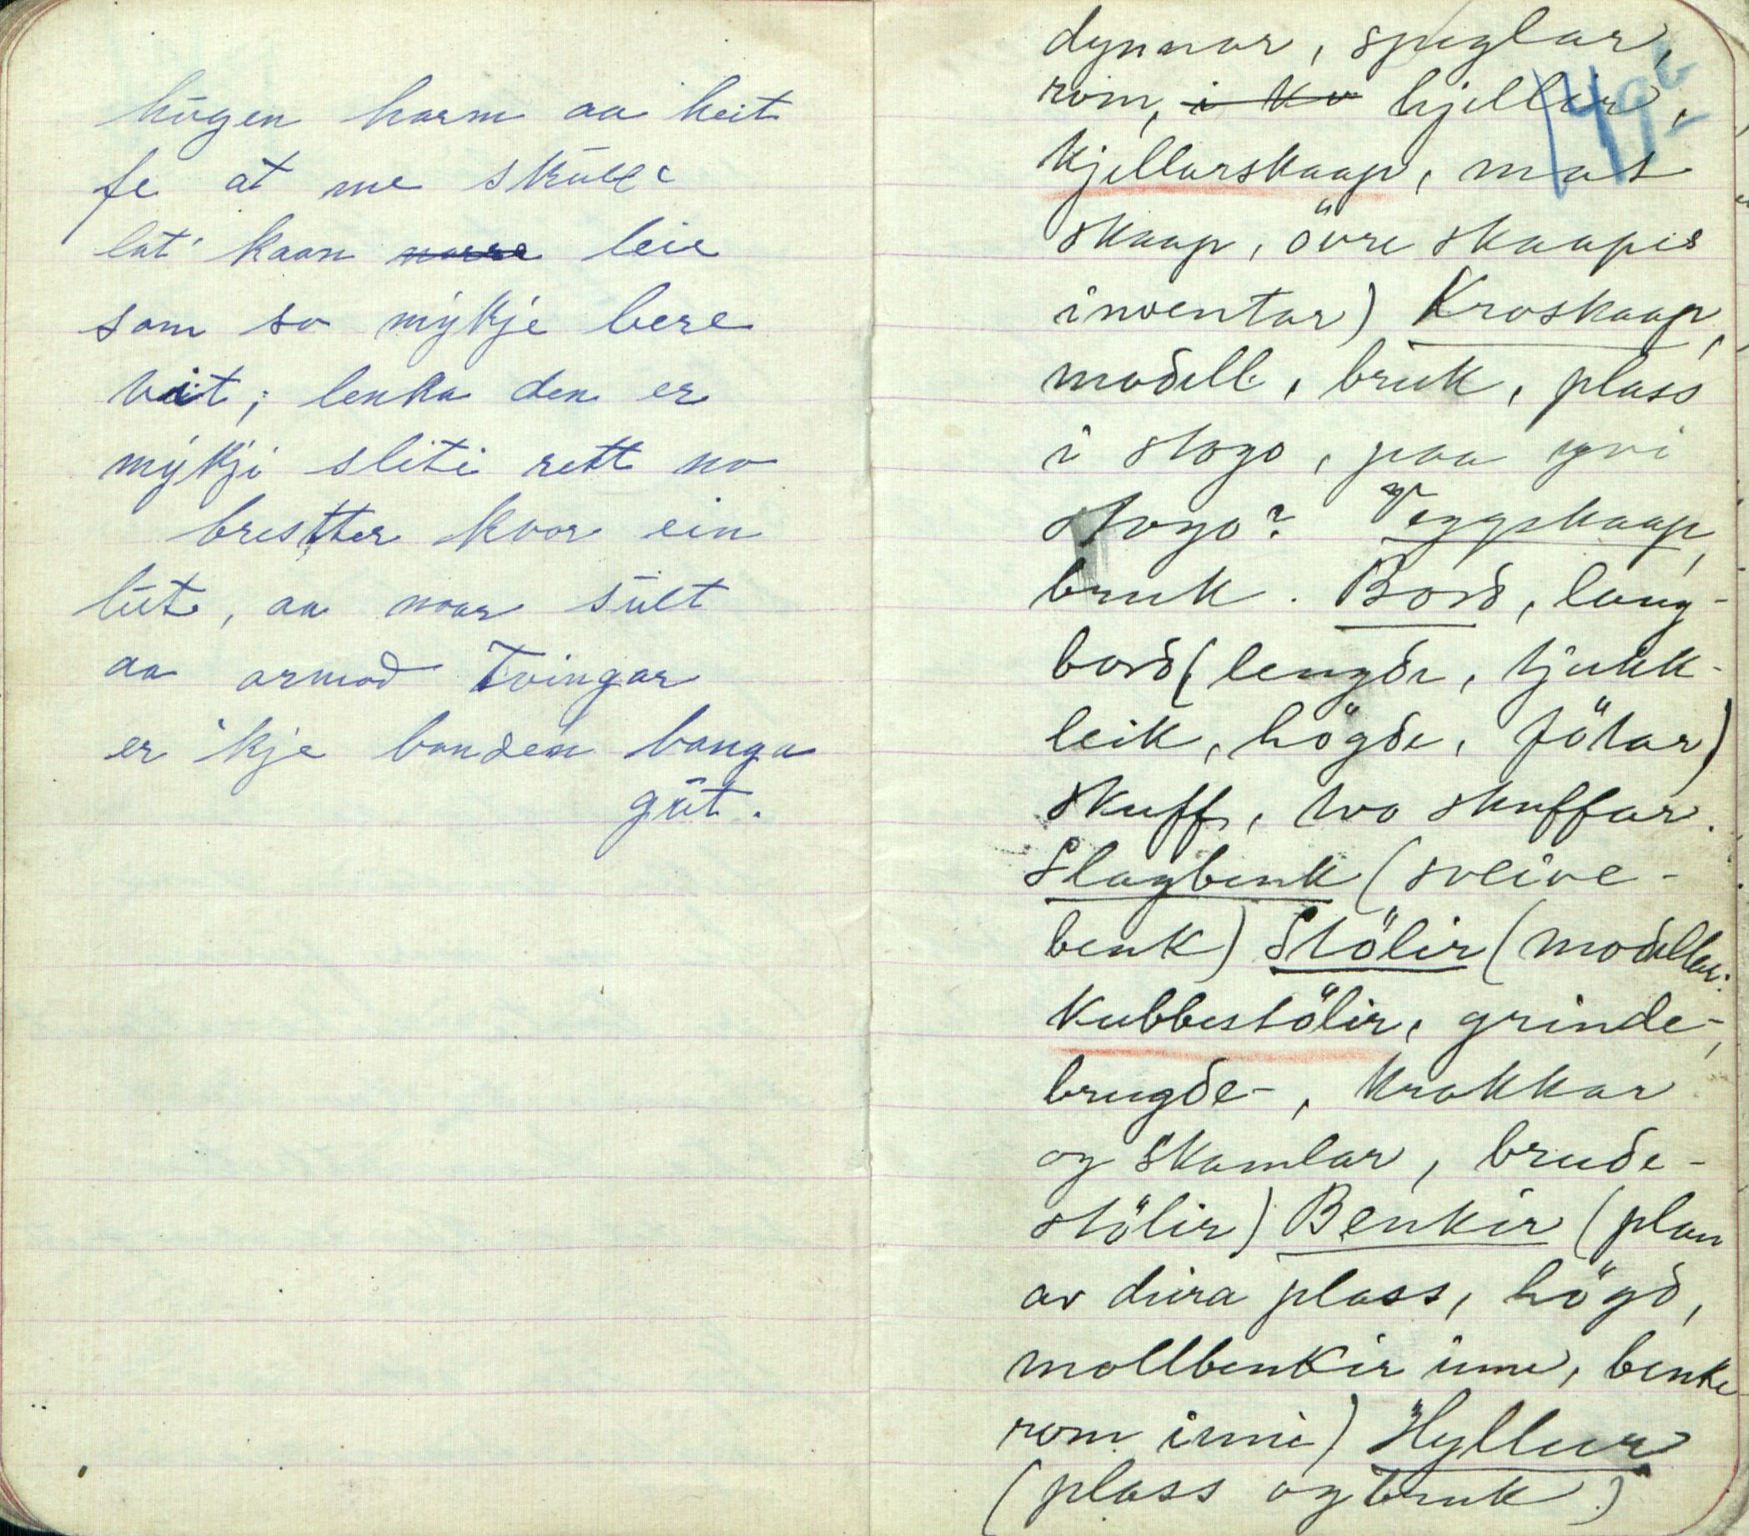 hugen harm aa heit
fe at me skulle
lat' kaan narre leie
som so mykje bere
vit; lenka den er
mykji sliti rett no
brestter kvor ein
lut, aa naar sult
aa armod Tvingar
er 'kje banden banga
gut.
149b
dynnar, speglar,
rom, i kv hjellir,
Kjellarskaap, mat
skaap, övre skaapis
inventar) Kroskaap,
modell, bruk, plass
i stogo, paa yvi
stogo? Veggskaap,
bruk. Bord, lang-
bord (lengde, tjukk-
leik, högde, fötar)
skuff, tvo skuffar.
Slagbenk (sveive-
benk) Stölir (modellar:
Kubbestölir, grinde-,
brugde-, krakkar
og skamlar, brude-
stölir) Benkir (plan
av dira plass, högd,
mollbenkir inne, benke
rom inni) Hyllur
(plass og bruk)